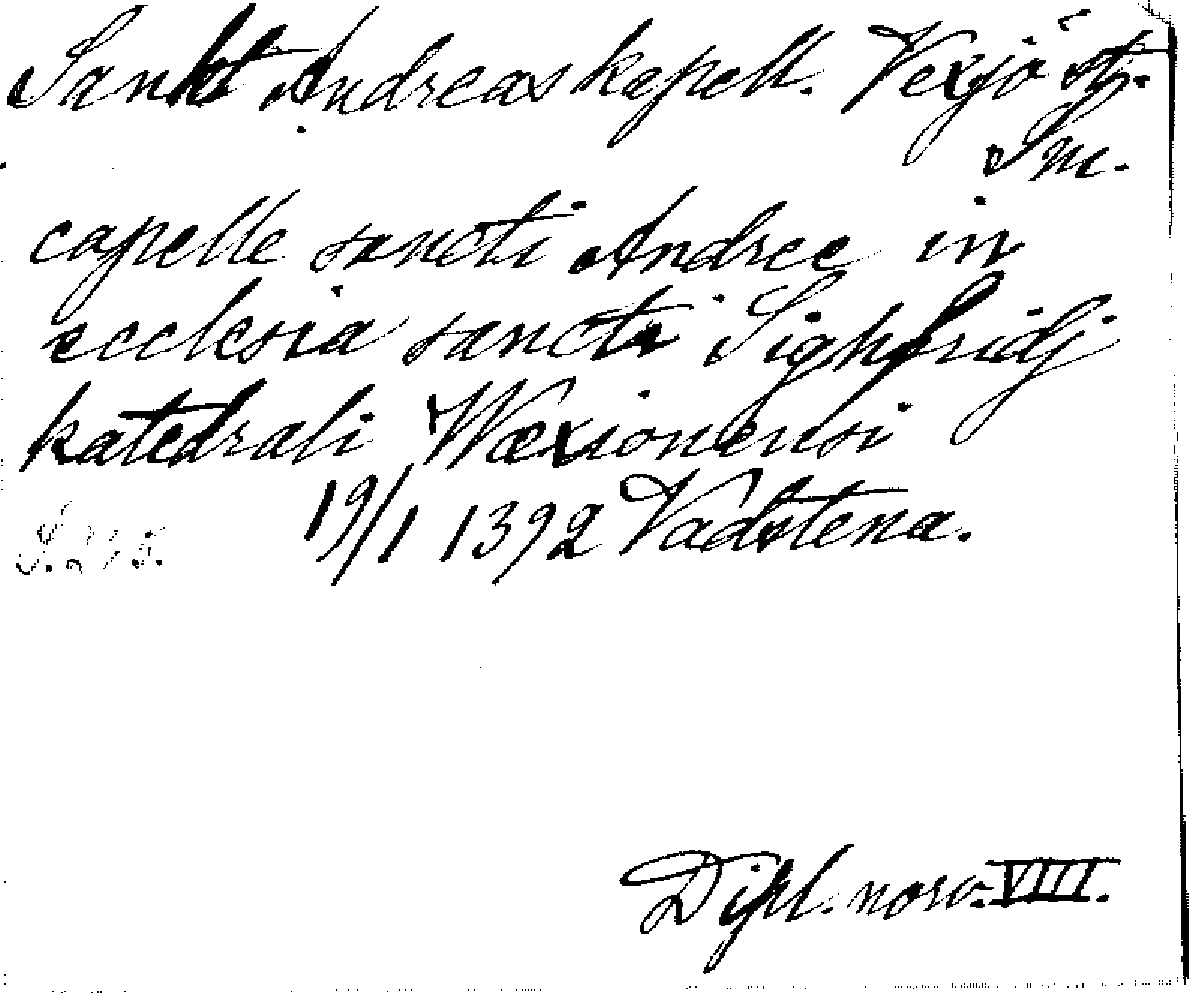 Sankt Andreas kapell. Vexjö st.
Sm.
capelle sancti Andree in
ecclesia sancti Sighfridj
katedrali Wexionensi
19/1 1392 Vadstena.
Dipl. norv. VIII.